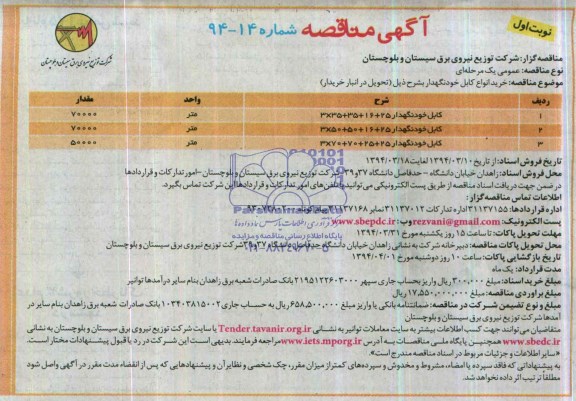 نوبت اول
آگهی مناقصه شماره ۱۴-۹۴
شرکت توزیع نیروی برق سیستان و بلوچستان
مناقصه گزار: شرکت توزیع نیروی برق سیستان و بلوچستان
نوع مناقصه: عمومی یک مرحله‌ای
موضوع مناقصه: خرید انواع کابل خودنگهدار بشرح ذیل (تحویل در انبار خریدار)
ردیف شرح واحد مقدار
۱ کابل خودنگهدار ۲۵+۱۶+۳۵+۳×۳۵ متر ۷۰۰۰۰
۲ کابل خودنگهدار ۲۵+۱۶+۵۰+۳×۵۰ متر ۷۰۰۰۰
۳ کابل خودنگهدار ۲۵+۷۰+۳×۷۰ متر ۵۰۰۰۰
تاریخ فروش اسناد: از تاریخ ۱۳۹۴/۰۳/۱۰ لغایت ۱۳۹۴/۰۳/۱۸
محل فروش اسناد: زاهدان خیابان دانشگاه - حدفاصل دانشگاه ۳۷ و ۳۹ شرکت توزیع نیروی برق سیستان و بلوچستان - امور تدارکات و قراردادها
در ضمن جهت دریافت اسناد مناقصه از طریق پست الکترونیکی می‌توانید با تلفن‌های امور تدارکات و قراردادها این شرکت تماس بگیرد.
اطلاعات تماس مناقصه گزار:
اداره قراردادها: ۳۱۱۳۷۱۵۵ اداره تدارکات ۳۱۱۳۷۰۱۲ نمابر ۳۱۱۳۷۱۶۸
پست الکترونیک: rezvani@gmail.com وب: www.sbepdc.ir
مهلت تحویل پاکات: تا ساعت ۱۵ روز یکشنبه مورخ ۱۳۹۴/۰۳/۳۱
محل تحویل پاکات مناقصه: دبیرخانه شرکت به نشانی زاهدان خیابان دانشگاه حدفاصل دانشگاه ۳۷ و ۳۹ شرکت توزیع نیروی برق سیستان و بلوچستان
تاریخ بازگشایی پاکات: ساعت ۱۰ روز دوشنبه مورخ ۱۳۹۴/۰۴/۰۱
مدت قرارداد: یک ماه
مبلغ خرید اسناد: مبلغ ۳۰۰,۰۰۰ ریال واریز بحساب جاری سپهر ۲۱۹۵۱۲۲۶۰۳۰۰۰ بانک صادرات شعبه برق زاهدان بنام سایر درآمدها توانیر
مبلغ برآوردی مناقصه: مبلغ ۱۷,۵۵۰,۰۰۰,۰۰۰ ریال
مبلغ و نوع تضمین شرکت در مناقصه: ضمانتنامه بانکی یا واریز مبلغ ۶۵۸,۵۰۰,۰۰۰ ریال به حساب جاری ۱۰۳۴۰۳۸۱۵۰۰۲ بانک صادرات شعبه برق زاهدان بنام سایر در
آمدها شرکت توزیع نیروی برق سیستان و بلوچستان
متقاضیان می توانند جهت کسب اطلاعات بیشتر به سایت معاملات توانیر به نشانی Tender.tavanir.org.ir یا سایت شرکت توزیع نیروی برق سیستان و بلوچستان به نشانی
www.sbepdc.ir همچنین پایگاه ملی مناقصات به آدرس www.iets.mporg.ir مراجعه فرمایند. بدیهی است این شرکت در رد یا قبول پیشنهادات مختار است.
«سایر اطلاعات و جزئیات مربوط در اسناد مناقصه مندرج است».
به پیشنهاداتی که فاقد سپرده یا امضاء، مشروط و مخدوش و سپرده‌های کمتر از میزان مقرر، چک شخصی و نظایر آن و پیشنهادهایی که پس از انقضاء مدت مقرر در آگهی واصل شود
مطلقا ترتیب اثر داده نخواهد شد.